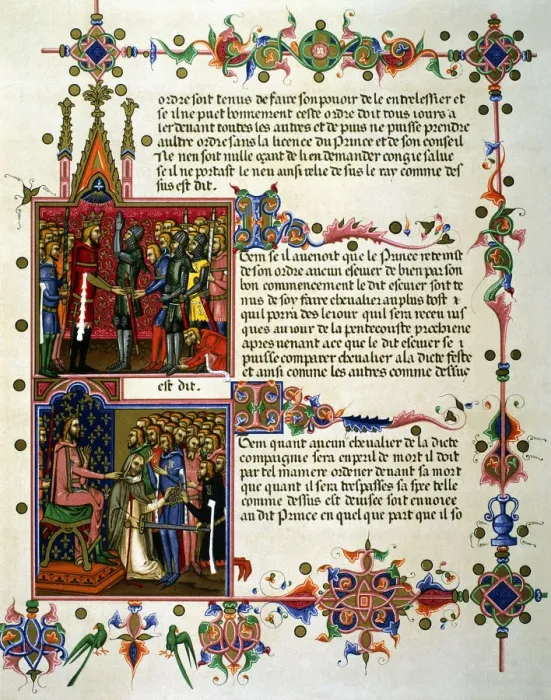 ordre soit tenus de faire son pouoir de le entrelessier et
se il ne puet bonnement ceste ordre doit tous iours a
ler deuant toutes les autres et de puis ne puisse prendre
aultre ordre sans la licence du Prince et de son conseil
Ne nen soit nulle
de lien demander congie salue
se il ne portast le neu ainsi relie de sus le ray comme des
sus est dit.
Item se il auenoit que le Prince retenist
de son ordre aucun escuier de bien par son
bon commencement le dit escuier soit te
nus de soy faire cheualier au plus tost
quil porra des le iour quil sera receu ius
ques au iour de la pentecouste prochiene
apres uenant ace que le dit escuier se
puisse comparer cheualier a la dicte feste
et ainsi comme les autres comme dessus
est dit.
Item quant aucun cheualier de la dicte
compaignie sera en peril de mort il doit
par tel maniere ordener deuant sa mort
que quant il sera trespasses sa
telle
comme dessus est deuisee soit enuoiee
au dit Prince en quel que part que il so